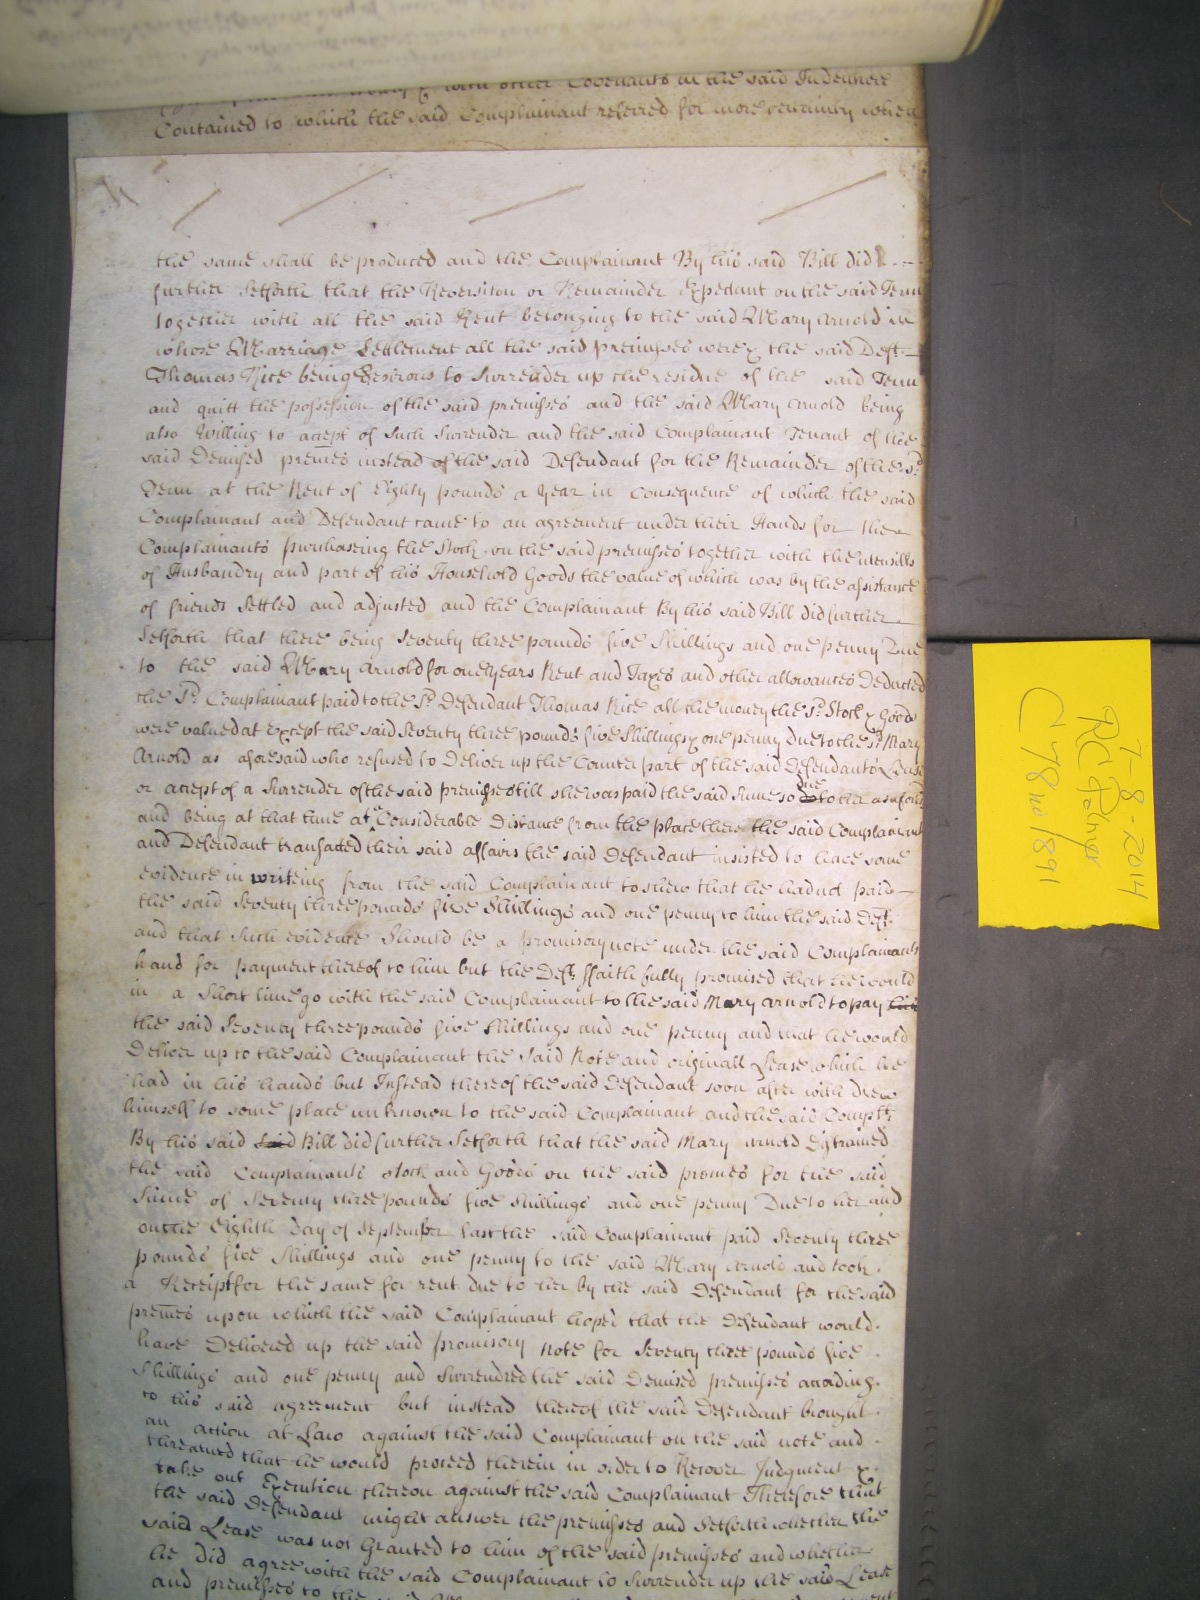 with other Covenants in the said Indenture
Contained to which the said Complainant referred for more certainty when
the same shall be produced and the Complainant By his said Bill did
further Setforth that the Reversiton or Remainder Expectant on the said Term
together with all the said Rent belonging to the said Mary Arnold in
whose Marriage Settlement all the said premisses were & the said Deft
Thomas Rice being Desirous to Surrender up the residue of the said Term
and quitt the possession of the said premisses and the said Mary Arnold being
also Willing to accept of Such Surrender and the said Complainant Tenant of the
said Demised premes instead of the said Defendant for the Remainder of the sd
Term at the Rent of Eighty pounds a year in Consequence of which the said
Complainant and Defendant came to an agreement under their Hands for the
Complainants purchaseing the Stock on the said premisses together with the utensills
of Husbandry and part of his Household Goods the value of which was by the assistance
of friends Settled and adjusted and the Complainant By his said Bill did further
Setforth that there being Seventy three pounds five Shillings and one penny Due
to the said Mary Arnold for one years Rent and Taxes and other allowances Deducted
the sd Complainant paid to the sd Defendant Thomas Rice all the money the sd Stock & Goods
were valued at Except the said Seventy three pounds five Shillings & one penny due to the sd Mary
Arnold as aforesaid who refused to Deliver up the Counterpart of the said Defendants Lease
or accept of a Surrender of the said premisses till she was paid the said Sume so due to her as aforsd
and being at that time at a Considerable Distance from the place there the said Complainant
and Defendant transacted their said affairs the said Defendant insisted to have some
evidence in writeing from the said Complainant to shew that he had not paid
the said Seventy three pounds five Shillings and one penny to him the said Deft
and that Such evidence Should be a promisory note under the said Complainants
hand for payment thereof to him but the Deft ffaithfully promised that he would
in a Short time go with the said Complainant to the said Mary Arnold to pay
the said Seventy three pounds five Shillings and one penny and that he would
Deliver up to the said Complainant the Said Note and originall Lease which he
had in his hands but Instead thereof the said Defendant soon after with drew
himself to some place unknown to the said Complainant and the said Complt
By his said Bill did further Setforth that the said Mary Arnold Distrained
the said Complainants stock and Goods on the said premes for the said
Sume of Seventy three pounds five Shillings and one penny Due to her and
on the Eighth Day of September last the said Complainant paid Seventy three
pounds five Shillings and one penny to the said Mary Arnold and took
a Receipt for the same for rent due to her by the said Defendant for the said
premes upon which the said Complainant hoped that the Defendant would
have Delivered up the said promisory note for Seventy three pounds five
Shillings and one penny and Surrendred the said Demised premisses according
to his said agreement but instead thereof the said Defendant brought
an action at Law against the said Complainant on the said note and
threatned that he would proceed therein in order to Recover Judgment &
take out Execution thereon against the said Complainant Therefore that
the said Defendant might answer the premisses and Setforth whether the
said Lease was not Granted to him of the said premisses and whether
he did agree with the said Complainant to Surrender up the said Lease
and premisses to the said
7-8-2014
RC Palmer
C 78 no 1891